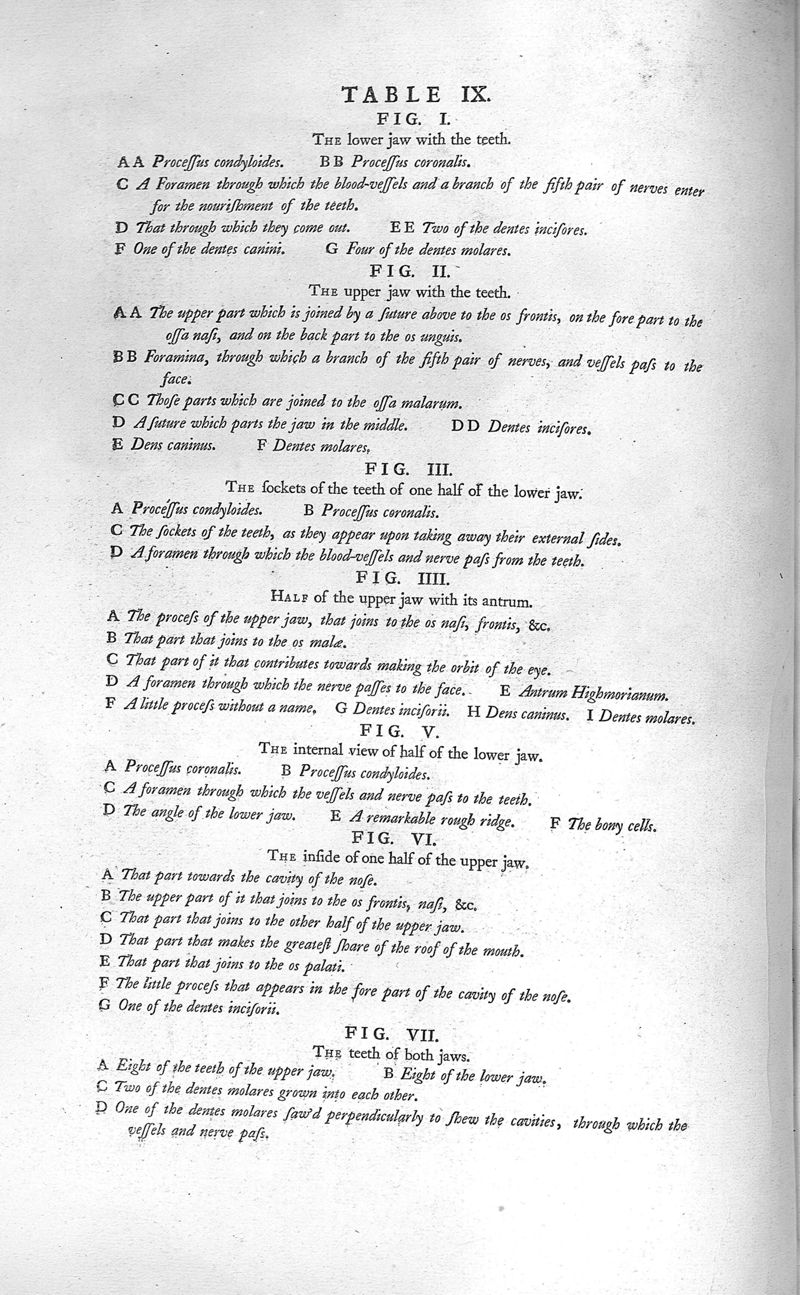 TABLE IX.
FIG. I.
THE lower jaw with the teeth.
A A Proceſſus condyloides. B B Proceſſus coronalis.
C A Foramen through which the blood-veſſels and a branch of the fifth pair of nerves enter
for the nouriſhment of the teeth.
D That through which they come out. E E Two of the dentes inciſores.
F One of the dentes canini. G Four of the dentes molares.
FIG. II.
THE upper jaw with the teeth.
A A The upper part which is joined by a ſuture above to the os frontis, on the fore part to the
oſſa naſi, and on the back part to the os unguis.
B B Foramina, through which a branch of the fifth pair of nerves, and veſſels paſs to the
face.
C C Thoſe parts which are joined to the oſſa malarum.
D A ſuture which parts the jaw in the middle. D D Dentes inciſores.
E Dens caninus. F Dentes molares.
FIG. III.
THE ſockets of the teeth of one half of the lower jaw.
A Proceſſus condyloides. B Proceſſus coronalis.
C The ſockets of the teeth, as they appear upon taking away their external ſides.
D A foramen through which the blood-veſſels and nerve paſs from the teeth.
FIG. IIII.
HALF of the upper jaw with its antrum.
A The proceſs of the upper jaw, that joins to the os naſi, frontis, &c.
B That part that joins to the os malæ.
C That part of it that contributes towards making the orbit of the eye.
D A foramen through which the nerve paſſes to the face. E Antrum Highmorianum.
F A little proceſs without a name. G Dentes inciſorii. H Dens caninus. I Dentes molares.
FIG. V.
THE internal view of half of the lower jaw.
A Proceſſus coronalis. B Proceſſus condyloides.
C A foramen through which the veſſels and nerve paſs to the teeth.
D The angle of the lower jaw. E A remarkable rough ridge. F The bony cells.
FIG. VI.
THE inſide of one half of the upper jaw.
A That part towards the cavity of the noſe.
B The upper part of it that joins to the os frontis, naſi, &c.
C That part that joins to the other half of the upper jaw.
D That part that makes the greateſt ſhare of the roof of the mouth.
E That part that joins to the os palati.
F The little proceſs that appears in the fore part of the cavity of the noſe.
G One of the dentes inciſorii.
FIG. VII.
THE teeth of both jaws.
A Eight of the teeth of the upper jaw. B Eight of the lower jaw.
C Two of the dentes molares grown into each other.
D One of the dentes molares ſaw'd perpendicularly to ſhew the cavities, through which the
veſſels and nerve paſs.